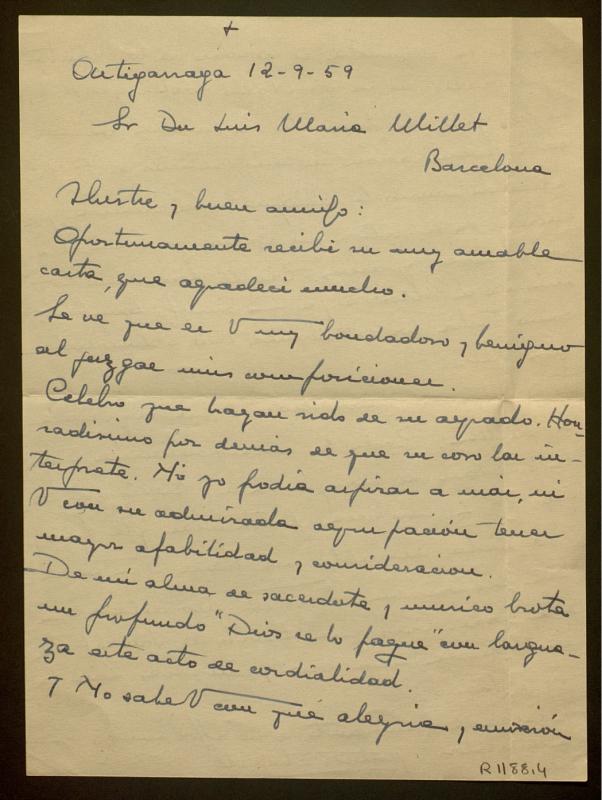 +
Astigarraga 12-9-59
Sr Dn Luis Maria Millet
Barcelona
Ilustre y buen amigo:
Oportunamente recibí su muy amable
carta, que agradecí mucho.
Se ve que es V muy bondadoso y benigno
al juzgar mis composiciones.
Celebro que hayan sido de su agrado. Hon-
radisimo por demás de que su coro las in-
terprete. Ni yo podía aspirar a más, ni
V con su admirada agrupación tener
mayor afabilidad y consideracion.
De mi alma de sacerdote y musico brota
un profundo "Dios se lo pague" con largue-
za este acto de cordialidad.
Y No sabe V con qué alegria y emoción
R 1188,4